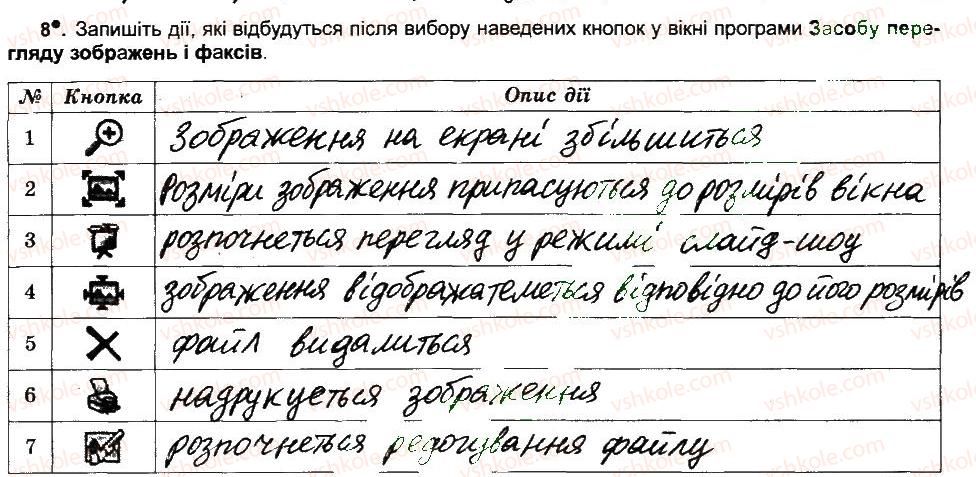 8●. Запишіть дії, які відбудуться після вибору наведених кнопок у вікні програми Засобу пере-
гляду зображень і факсів.
№ Кнопка Опис дії
1 Зображення на екрані збільшиться
2 Розміри зображення припасуються до розмірів вікна
3 розпочнеться перегляд у режимі слайд-шоу
4 зображення відображатеметься відповідно до його розмірів
5 файл видалиться
6 надрукується зображення
7 розпочнеться редогування файлу